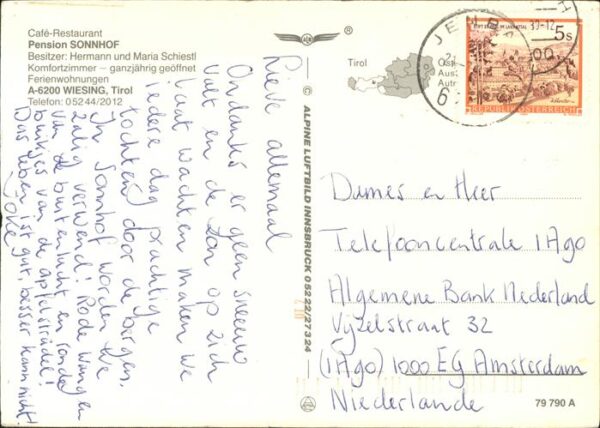 Café-Restaurant
Pension SONNHOF
Besitzer: Hermann und Maria Schiestl
Komfortzimmer – ganzjährig geöffnet
Ferienwohnungen
A-6200 WIESING, Tirol
Telefon: 05244/2012
Lieve allemaal
Ondanks er geen sneeuw
valt en de zon op zich
laat wachten maken we
iedere dag prachtige
tochten door de bergen.
In Sonnhof worden we
zalig verwend! Rode wangen
van de buitenlucht en ronde
buikjes van de apfelstrüdel!
Das leben ist gut, besser kann nicht!
© ALPINE LUFTBILD INNSBRUCK 05222/27324
Tirol
JENB
30.12
5s
REPUBLIK ÖSTERREICH
Dames en Heer
Telefooncentrale IAgo
Algemene Bank Nederland
Vijzelstraat 32
(IAgo) 1000 EG Amsterdam
Niederlande
79 790 A